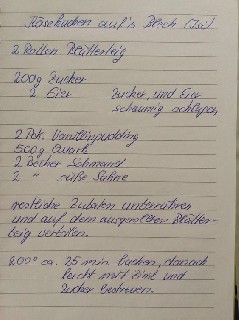 Käsekuchen auf's Blech (Isi)
2 Rollen Blätterteig
200g Zucker
2 Eier Zucker und Eier
schaumig schlagen
2 Pck. Vanillepudding
500g Quark
2 Becher Schmand
2 " süße Sahne
restliche Zutaten unterrühren
und auf dem ausgerollten Blätter-
teig verteilen.
200° ca. 25 min. backen, danach
leicht mit Zimt und
Zucker bestreuen.